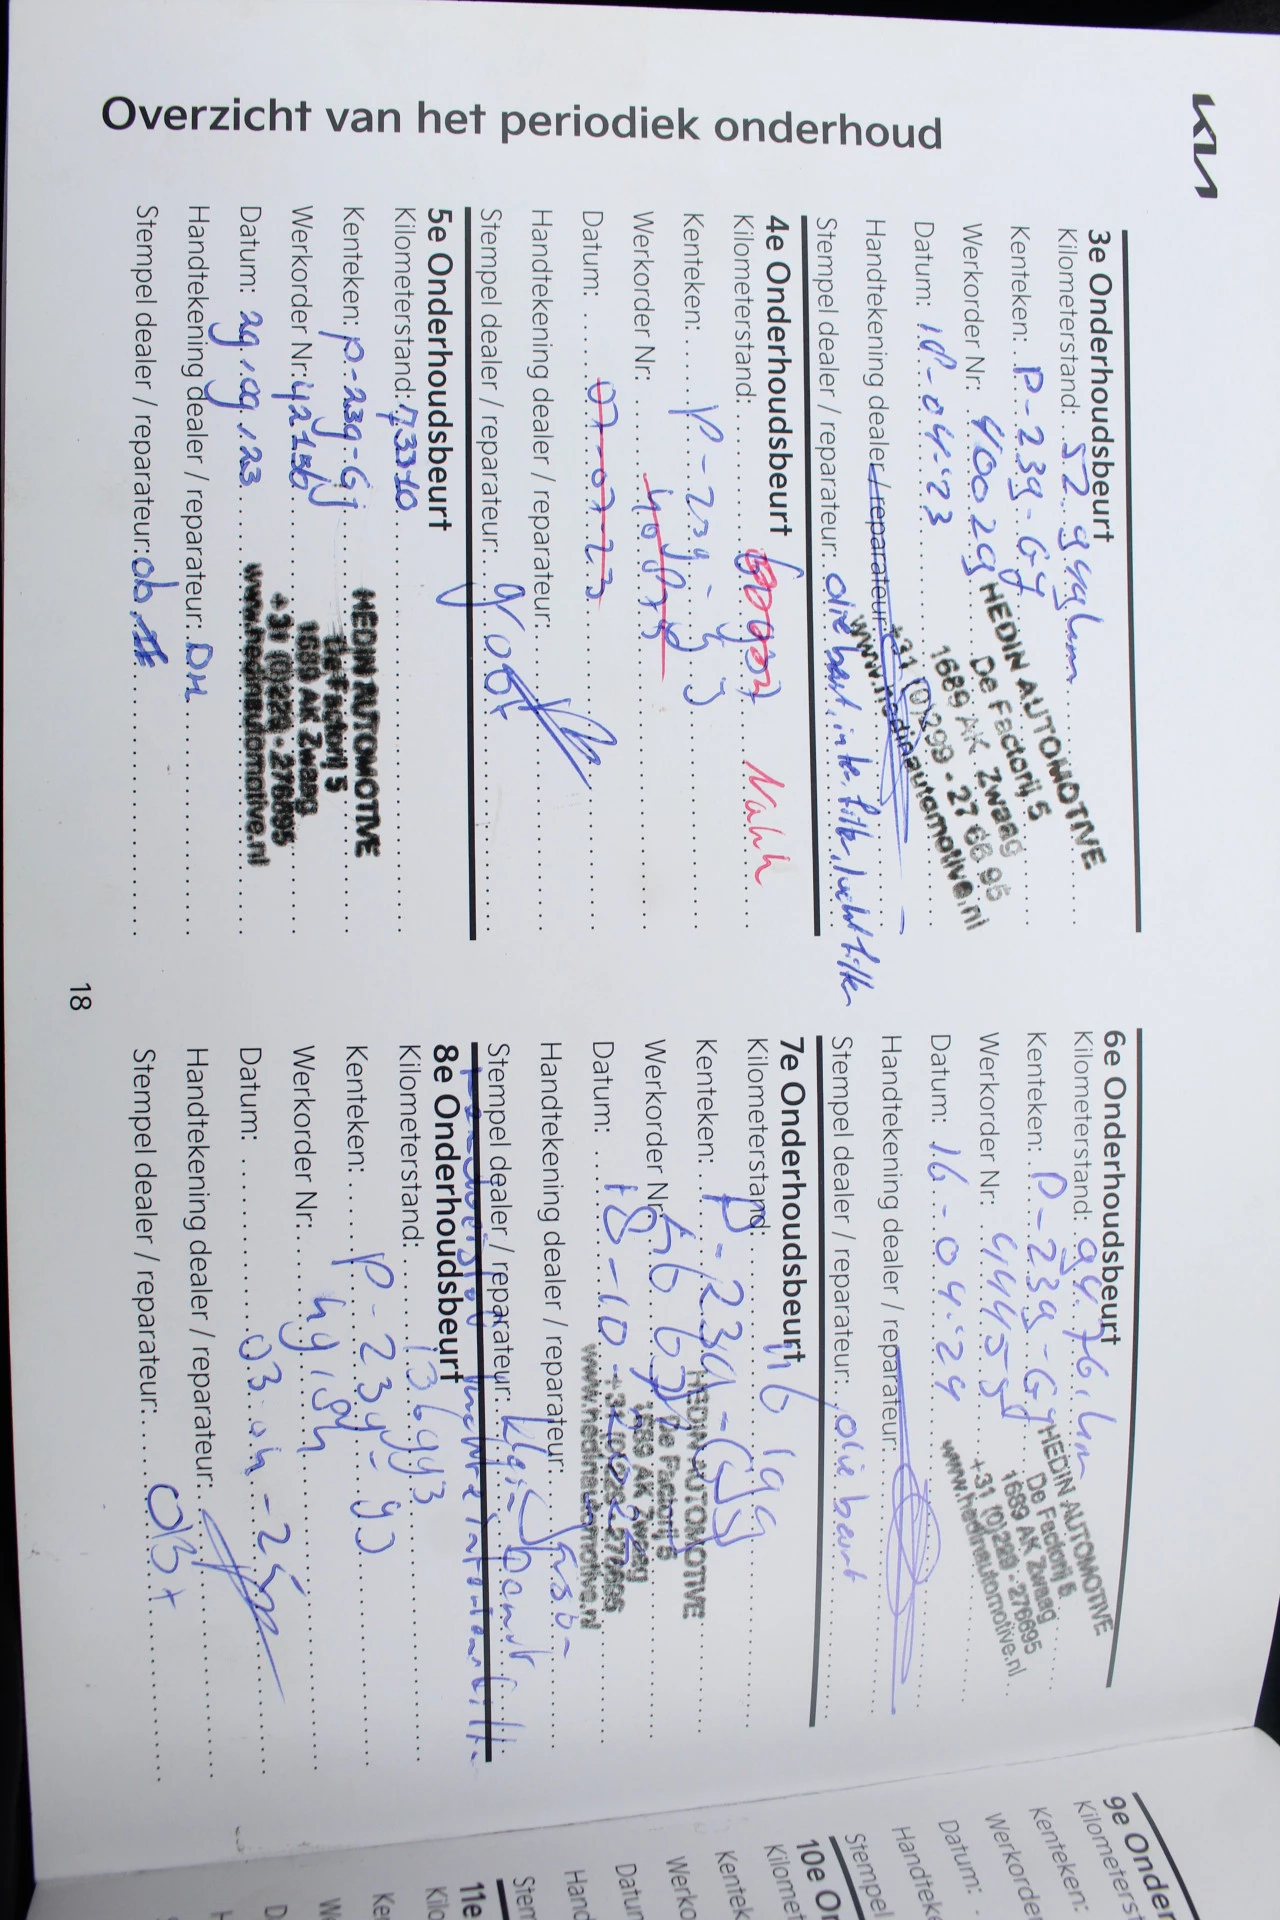 KIA
Overzicht van het periodiek onderhoud
3e Onderhoudsbeurt
Kilometerstand: 52.949 km
Kenteken: P-239-GJ
Werkorder Nr: 40029
Datum: 18-04-'23
Handtekening dealer / reparateur:
Stempel dealer / reparateur: olie beurt, int. filter, luchtfilter
HEDIN AUTOMOTIVE
De Factorij 5
1689 AK Zwaag
+31 (0)299 - 27 66 95
www.hedinautomotive.nl
4e Onderhoudsbeurt
Kilometerstand:
Kenteken: P-239-GJ
Werkorder Nr:
Datum: 07-07-23
Handtekening dealer / reparateur:
Stempel dealer / reparateur:
5e Onderhoudsbeurt
Kilometerstand: 73310
Kenteken: P-239-GJ
Werkorder Nr:
Datum: 29.09.23
Handtekening dealer / reparateur: DM
Stempel dealer / reparateur:
HEDIN AUTOMOTIVE
De Factorij 5
1689 AK Zwaag
+31 (0)229 - 276695
www.hedinautomotive.nl
18
6e Onderhoudsbeurt
Kilometerstand: 94.76. km
Kenteken: P-239-GJ
Werkorder Nr: 44455
Datum: 16-04-'24
Handtekening dealer / reparateur:
Stempel dealer / reparateur: olie beurt
HEDIN AUTOMOTIVE
De Factorij 5
1689 AK Zwaag
+31 (0)229 - 276695
www.hedinautomotive.nl
7e Onderhoudsbeurt
Kilometerstand: 116 199
Kenteken: P-239-GJ
Werkorder Nr:
Datum: 18-10-
Handtekening dealer / reparateur:
Stempel dealer / reparateur:
HEDIN AUTOMOTIVE
De Factorij 5
1689 AK Zwaag
www.hedinautomotive.nl
8e Onderhoudsbeurt
Kilometerstand: 136993
Kenteken: P-239-GJ
Werkorder Nr:
Datum: 03-04-25
Handtekening dealer / reparateur:
Stempel dealer / reparateur: OBt
9e Onder
Kilometerst
Kenteken:
Werkorder
Datum:
Handteke
Stempel
10e On
Kilomet
Kentek
Werko
Datun
Hand
Stem
11e
Kilo
Ke
W
D
H